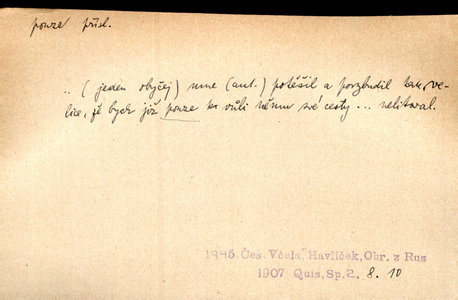 pouze přísl.
.. (jeden obyčej) mne (aut.) potěšil a povzbudil tak, ve-
lice, že bych již pouze ku vůli němu své cesty ... nelitoval.
1845. Čes. Včela, Havlíček, Obr. z Rus
1907 Quis, Sp. 2. 8. 10